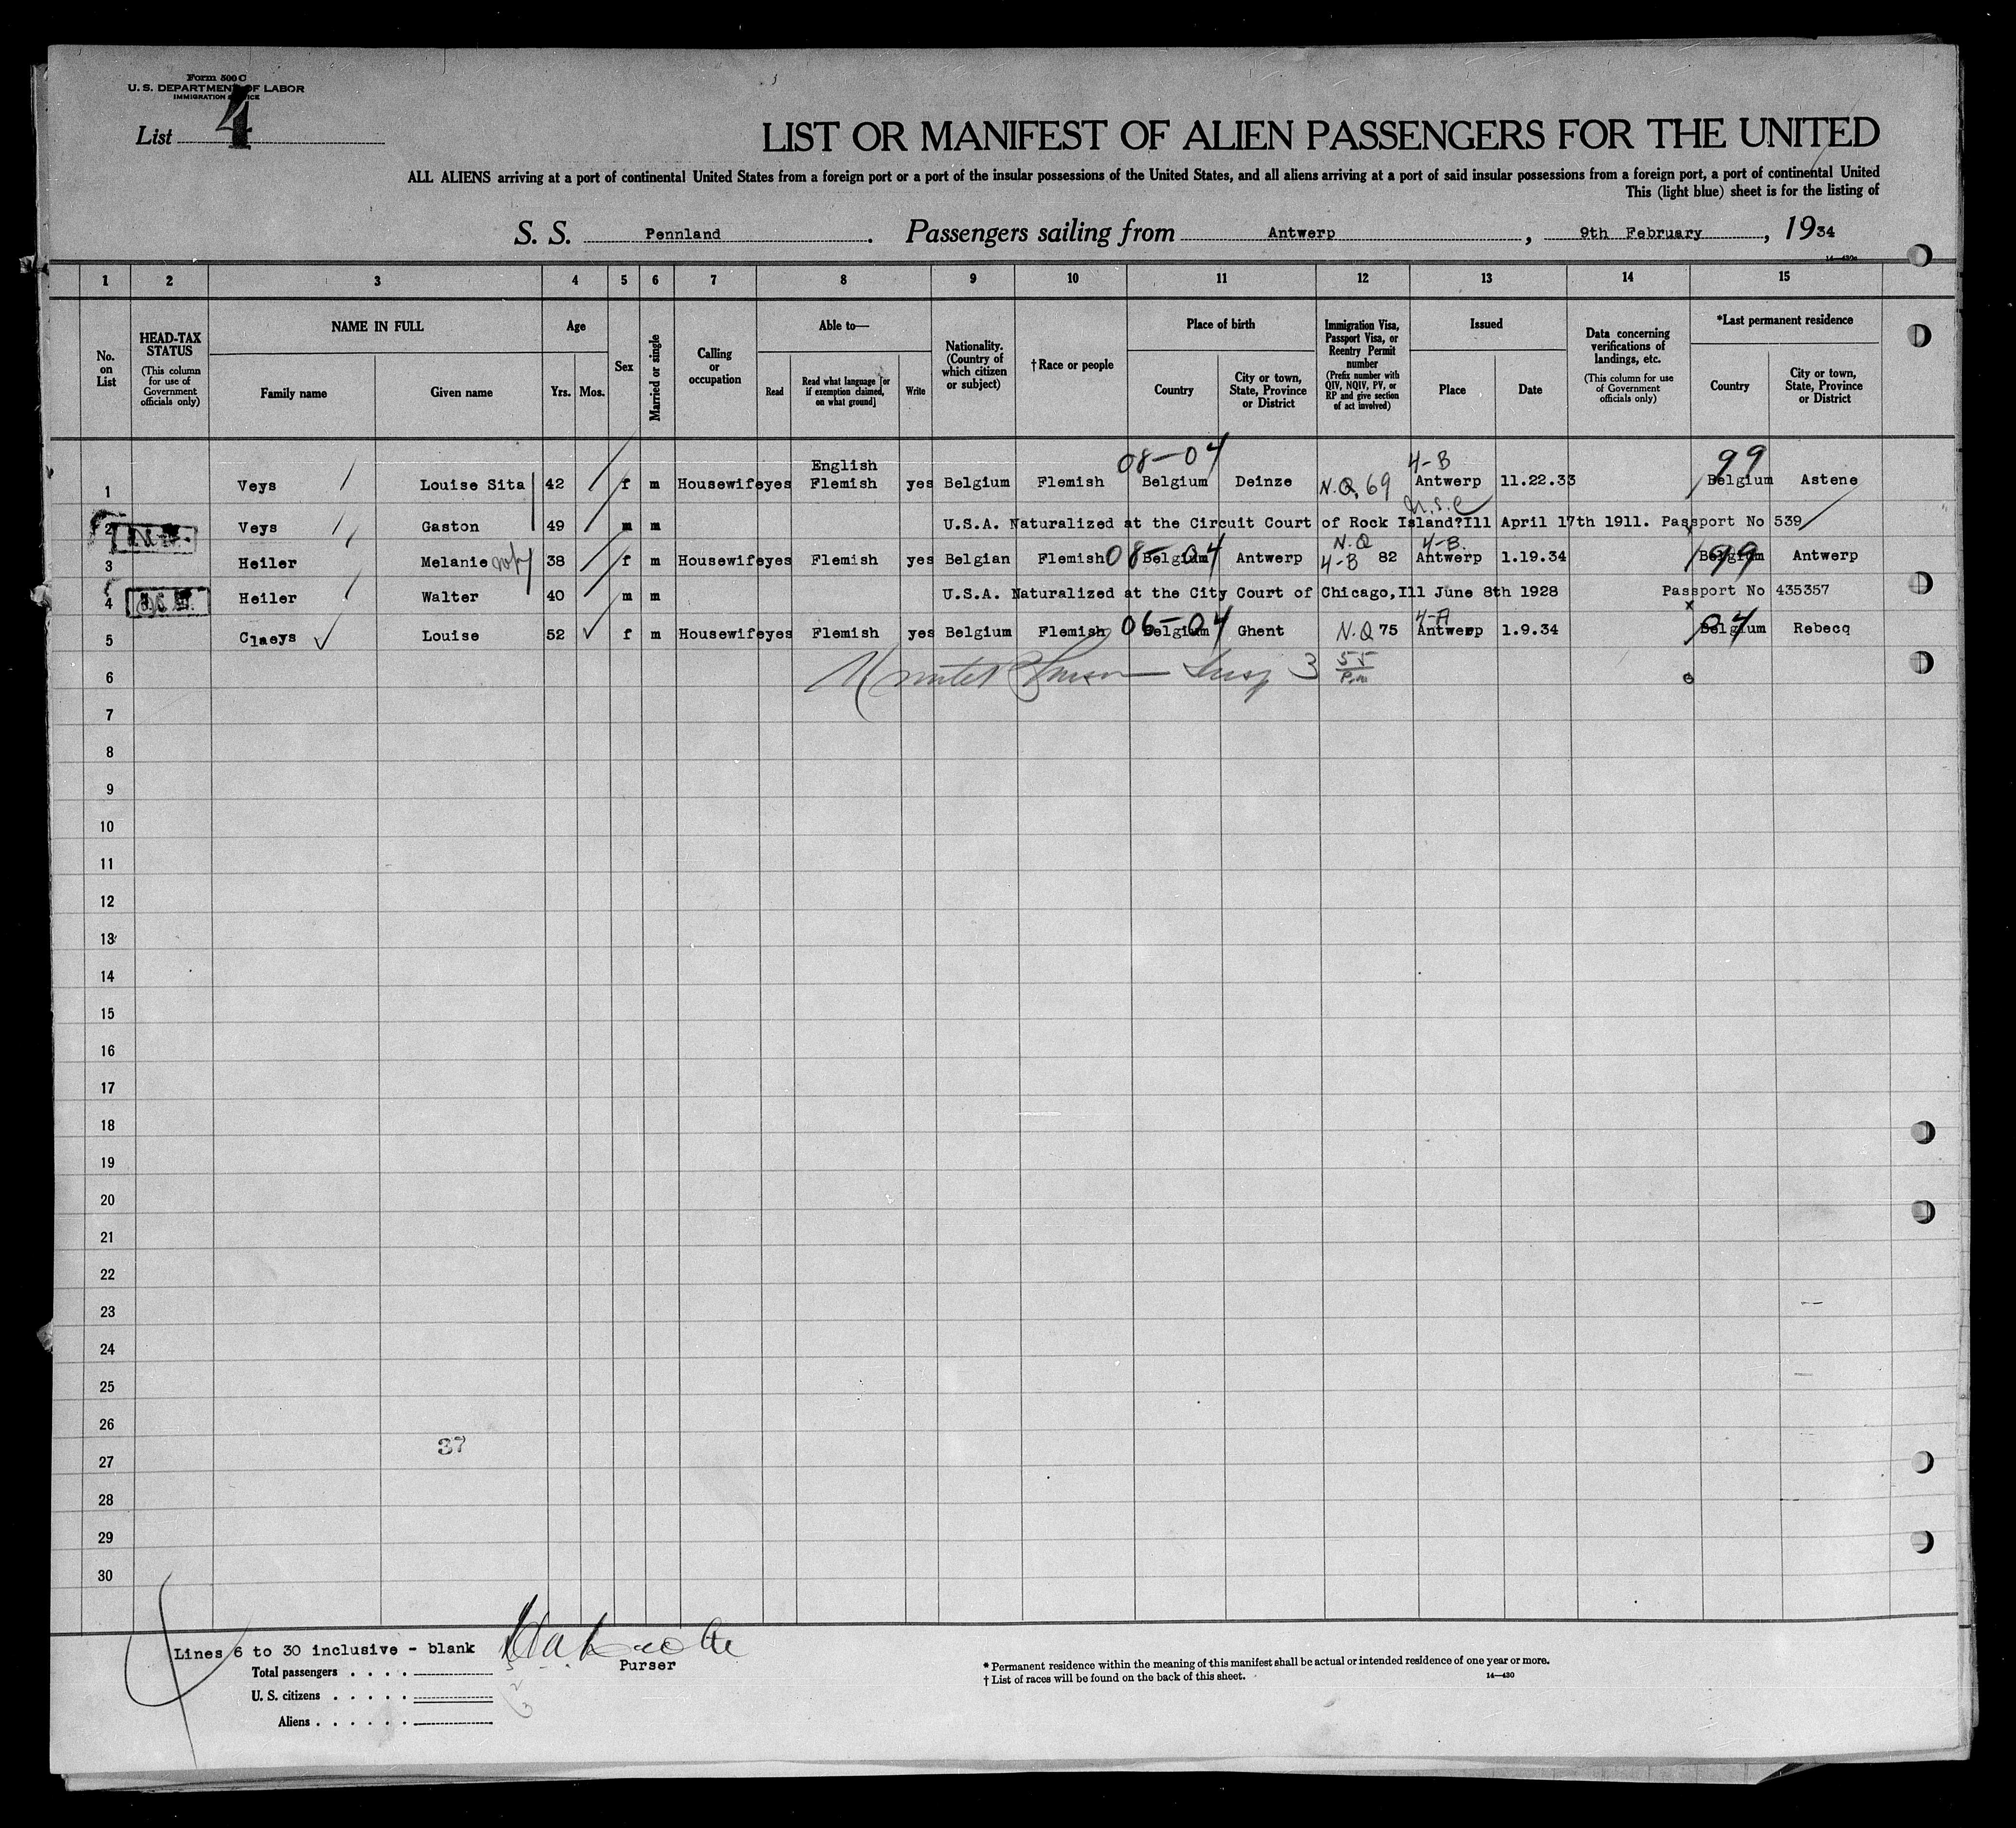 Form 500 C
U. S. DEPARTMENT OF LABOR
IMMIGRATION
List 4
LIST OR MANIFEST OF ALIEN PASSENGERS FOR THE UNITED
ALL ALIENS arriving at a port of continental United States from a foreign port or a port of the insular possessions of the United States, and all aliens arriving at a port of said insular possessions from a foreign port, a port of continental United
This (light blue) sheet is for the listing of
S. S. Pennland. Passengers sailing from Antwerp, 9th February, 1934
14—430a
1 2 3 4 5 6 7 8 9 10 11 12 13 14 15
No. on List
HEAD-TAX STATUS
(This column for use of Government officials only)
NAME IN FULL
Family name Given name
Age
Yrs. Mos.
Sex
Married or single
Calling or occupation
Able to—
Read
Read what language [or if exemption claimed, on what ground]
Write
Nationality. (Country of which citizen or subject)
†Race or people
Place of birth
Country
City or town, State, Province or District
Immigration Visa, Passport Visa, or Reentry Permit number
(Prefix number with QIV, NQIV, PV, or RP and give section of act involved)
Issued
Place Date
Data concerning verifications of landings, etc.
(This column for use of Government officials only)
*Last permanent residence
Country
City or town, State, Province or District
08-04 4-B 99
English
1 Veys Louise Sita 42 f m Housewife yes Flemish yes Belgium Flemish Belgium Deinze N.Q. 69 Antwerp 11.22.33 Belgium Astene
U.S.C
2 Veys Gaston 49 m m U.S.A. Naturalized at the Circuit Court of Rock Island?Ill April 17th 1911. Passport No 539
N.Q 4-B.
3 Heiler Melanie 38 f m Housewife yes Flemish yes Belgian Flemish 08-04 Belgium Antwerp 4-B 82 Antwerp 1.19.34 99 Belgium Antwerp
4 Heiler Walter 40 m m U.S.A. Naturalized at the City Court of Chicago,Ill June 8th 1928 Passport No 435357
4-A
5 Claeys Louise 52 f m Housewife yes Flemish yes Belgium Flemish 06-04 Belgium Ghent N.Q 75 Antwerp 1.9.34 04 Belgium Rebecq
6 3 55
7
8
9
10
11
12
13
14
15
16
17
18
19
20
21
22
23
24
25
26
37
27
28
29
30
Lines 6 to 30 inclusive - blank
Purser
Total passengers . . . .
U. S. citizens . . . . .
Aliens . . . . . .
* Permanent residence within the meaning of this manifest shall be actual or intended residence of one year or more.
† List of races will be found on the back of this sheet.
14—430